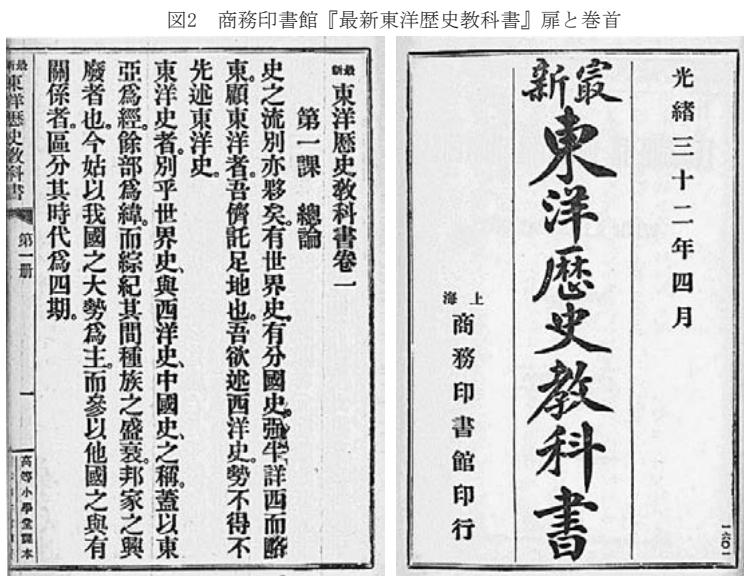 図2 商務印書館『最新東洋歴史教科書』扉と巻首
光緒三十二年四月
㝡新東洋歷史教科書
上海
商務印書館印行
最新東洋歷史教科書卷一
第一課 總論
史之流別亦夥矣。有世界史。有分國史。強半詳西而略
東。顧東洋者。吾儕託足地也。吾欲述西洋史。勢不得不
先述東洋史。
東洋史者。別乎世界史、與西洋史、中國史、之稱。蓋以東
亞爲經。餘部爲緯。而綜紀其間種族之盛衰。邦家之興
廢者也。今姑以我國之大勢爲主。而參以他國之與有
關係者。區分其時代爲四期。
最新東洋歷史教科書 第一册 一 高等小學堂課本